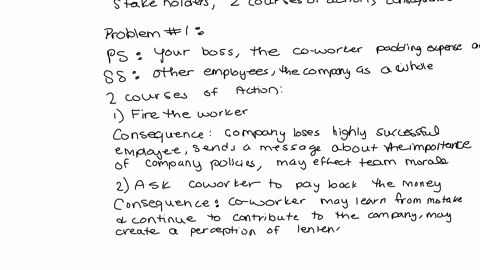 Stake holders, 2 courses of action, consequence
Problem #1:
PS: Your boss, the co-worker padding expense a
SS: other employees, the company as a whole
2 courses of Action:
1) Fire the worker
Consequence: company loses highly successful
employee, sends a message about the importance
of company policies, may effect team morale
2) Ask coworker to pay back the money
Consequence: co-worker may learn from mistake
& continue to contribute to the company, may
create a perception of lenien